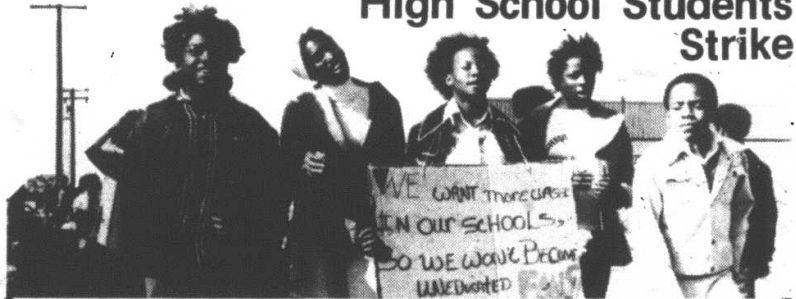 High School Students
Strike
WE WANT more CLASS
IN OUR SCHOOLS,
SO WE WON'T BECOME
UNEDUCATED